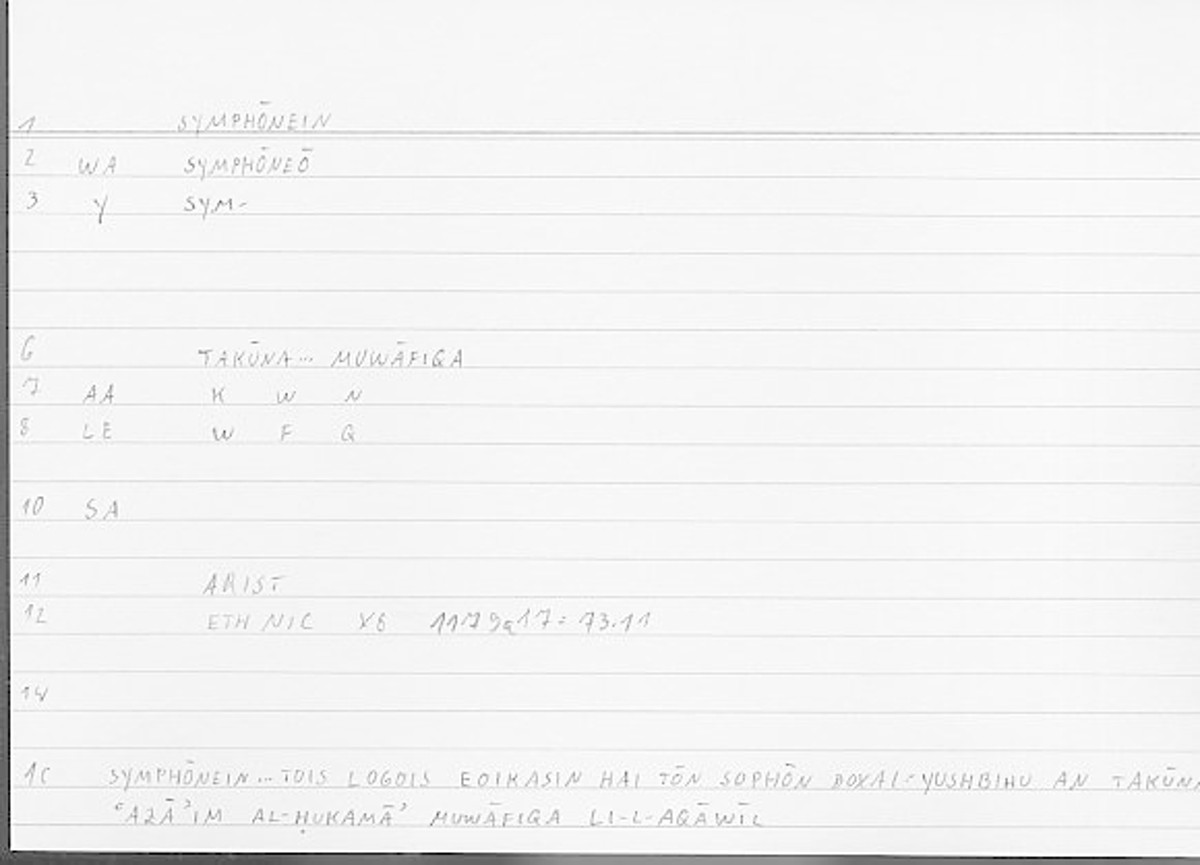 1 SYMPHŌNEIN
2 WA SYMPHŌNEŌ
3 Y SYM-
6 TAKŪNA... MUWĀFIQA
7 AA K W N
8 LE W F Q
10 SA
11 ARIST
12 ETH NIC X8 1179a17 = 73.11
14
15 SYMPHŌNEIN... TOIS LOGOIS EOIKASIN HAI TŌN SOPHŌN DOXAI = YUSHBIHU AN TAKŪNA
ʿAZĀʾIM AL-ḤUKAMĀʾ MUWĀFIQA LI-L-AQĀWĪL